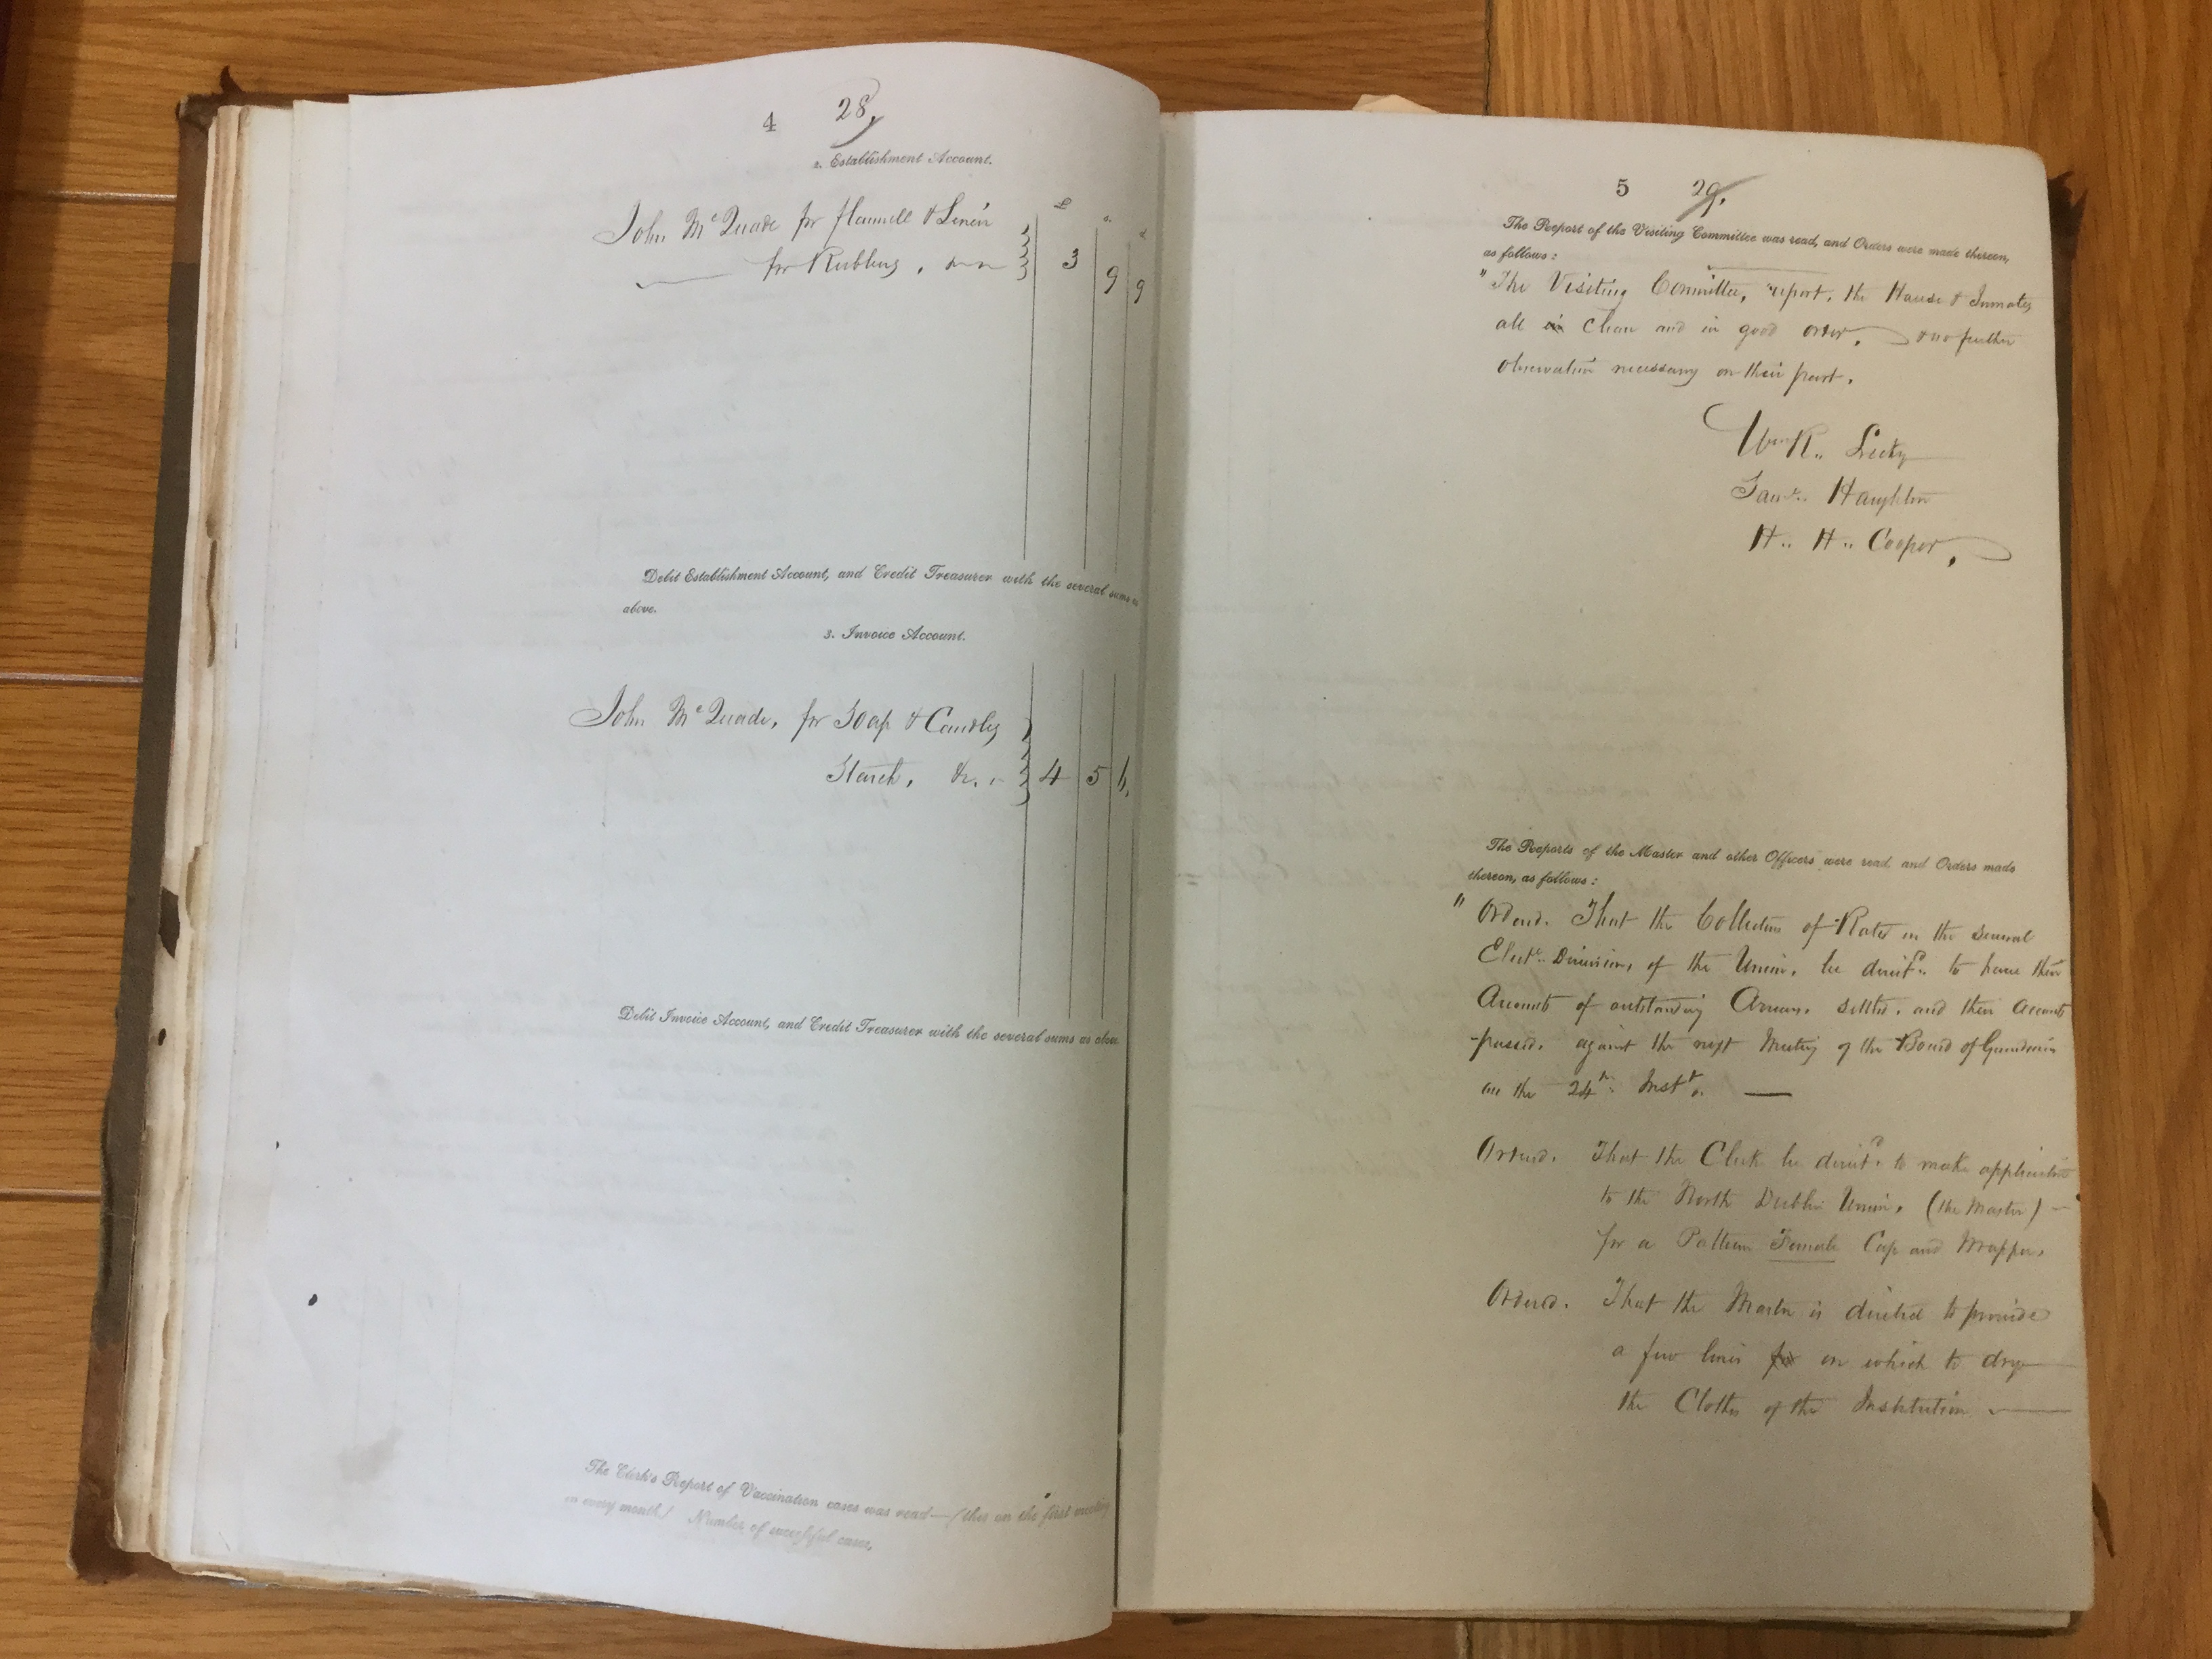 4 28,
2. Establishment Account.
£ s. d
John McQuade for flannell & Linen
for Rubbing,
3 9 9
Debit Establishment Account, and Credit Treasurer with the several sums as
above.
3. Invoice Account.
John McQuade, for Soap & Candles
Starch, &c.
4 5
Debit Invoice Account, and Credit Treasurer with the several sums as above
The Clerk's Report of Vaccination cases was read—(this on the first meeting
in every month) Number of successful cases,
5 29.
The Report of the Visiting Committee was read, and Orders were made thereon,
as follows:
"The Visiting Committee, report, the House & Inmates
all in Clean and in good order, & no further
observation necessary on their part.
Wm R.. Lecky
Saml.. Haughton
H.. H.. Cooper,
The Reports of the Master and other Officers were read, and Orders made
thereon, as follows:
" Ordered. That the Collectors of Rates in the several
Electl.. Divisions, of the Union, be directd. to have their
Accounts of outstanding Arrears, settled, and their accounts
passed, against the next Meeting of the Board of Guardians
on the 24th. Instt.. —
Ordered. That the Clerk be directd. to make application
to the North Dublin Union, (the Master) –
for a Pattern Female Cap and Wrapper.
Ordered. That the Master is directed to provide
a few lines for on which to dry
the Clothes of the Institution